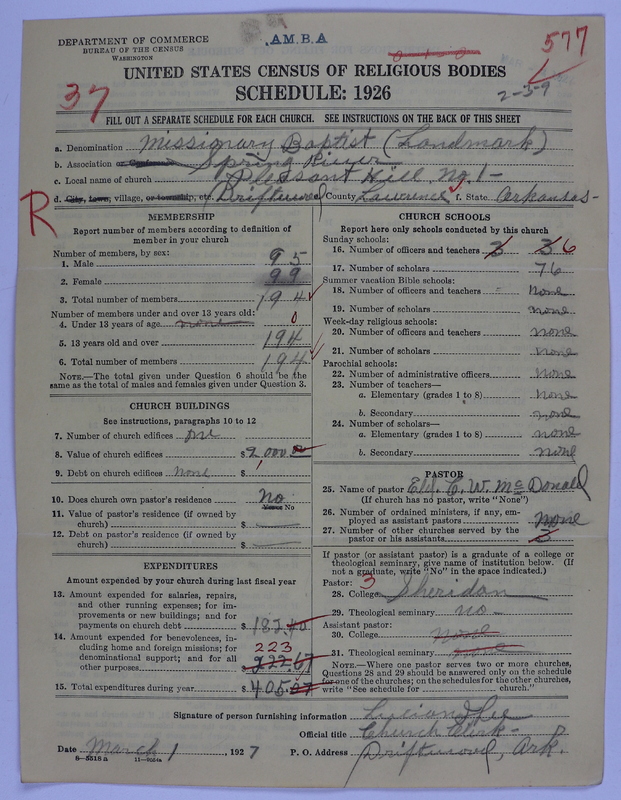 A.M.B.A
DEPARTMENT OF COMMERCE
BUREAU OF THE CENSUS
WASHINGTON
577
2-3-9
UNITED STATES CENSUS OF RELIGIOUS BODIES
37
SCHEDULE: 1926
FILL OUT A SEPARATE SCHEDULE FOR EACH CHURCH. SEE INSTRUCTIONS ON THE BACK OF THIS SHEET
a. Denomination Missionary Baptist (Landmark)
b. Association or Conference Spring River
c. Local name of church Pleasant Hill No. 1-
R
d. City, town, village, or township, etc. Driftwood County Lawrence f. State Arkansas-
MEMBERSHIP
Report number of members according to definition of
member in your church
Number of members, by sex:
1. Male 95
2. Female 99
3. Total number of members 194
Number of members under and over 13 years old:
4. Under 13 years of age none 0
5. 13 years old and over 194
6. Total number of members 194
NOTE.—The total given under Question 6 should be the
same as the total of males and females given under Question 3.
CHURCH BUILDINGS
See instructions, paragraphs 10 to 12
7. Number of church edifices one
8. Value of church edifices $2,000.00
9. Debt on church edifices None $
10. Does church own pastor's residence No
Yes or No
11. Value of pastor's residence (if owned by
church) $
12. Debt on pastor's residence (if owned by
church) $
EXPENDITURES
Amount expended by your church during last fiscal year
13. Amount expended for salaries, repairs,
and other running expenses; for im-
provements or new buildings; and for
payments on church debt $182.40
14. Amount expended for benevolences, in-
cluding home and foreign missions; for
denominational support; and for all
other purposes 223 222.67
15. Total expenditures during year $405.07
CHURCH SCHOOLS
Report here only schools conducted by this church
Sunday schools:
16. Number of officers and teachers 3 3 6
17. Number of scholars 76
Summer vacation Bible schools:
18. Number of officers and teachers none
19. Number of scholars none
Week-day religious schools:
20. Number of officers and teachers none
21. Number of scholars none
Parochial schools:
22. Number of administrative officers none
23. Number of teachers—
a. Elementary (grades 1 to 8) none
b. Secondary none
24. Number of scholars—
a. Elementary (grades 1 to 8) none
b. Secondary none
PASTOR
25. Name of pastor Eld. C. W. McDonald
(If church has no pastor, write "None")
26. Number of ordained ministers, if any, em-
ployed as assistant pastors None
27. Number of other churches served by the
pastor or his assistants 3
If pastor (or assistant pastor) is a graduate of a college or
theological seminary, give name of institution below. (If
not a graduate, write "No" in the space indicated.)
Pastor: 3
28. College Sheridan
29. Theological seminary no
Assistant pastor:
30. College None
31. Theological seminary none
NOTE.—Where one pastor serves two or more churches,
Questions 28 and 29 should be answered only on the schedule
for one of the churches; on the schedules for the other churches,
write "See schedule for church."
Signature of person furnishing information Lucian Lee
Official title Church Clerk-
Date March 1, 1927 P. O. Address Driftwood, Ark.
8-5515a 11-9054a